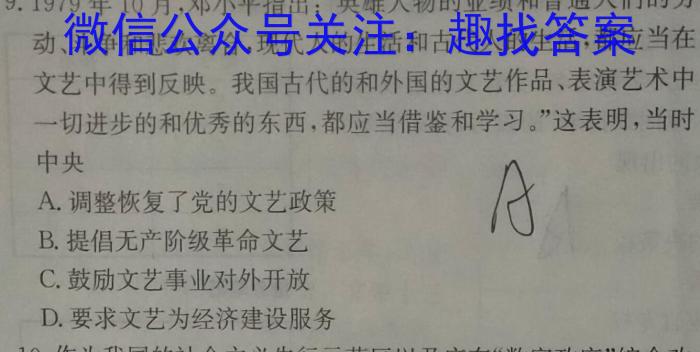 9. 1979年10月,邓小平指出:“英雄人物的业绩和普通人们的劳
动、
微信公众号关注:趣找答案
应当在
文艺中得到反映。我国古代的和外国的文艺作品、表演艺术中
一切进步的和优秀的东西,都应当借鉴和学习。”这表明,当时
中央
A
A. 调整恢复了党的文艺政策
B. 提倡无产阶级革命文艺
C. 鼓励文艺事业对外开放
D. 要求文艺为经济建设服务